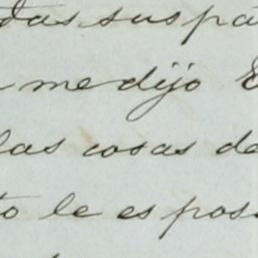 das sus pa
me dijo E
las cosas de
to le es pos